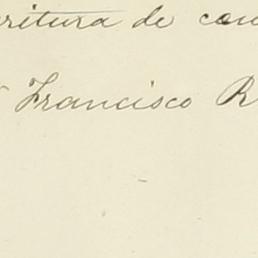 ritura de con
Francisco R